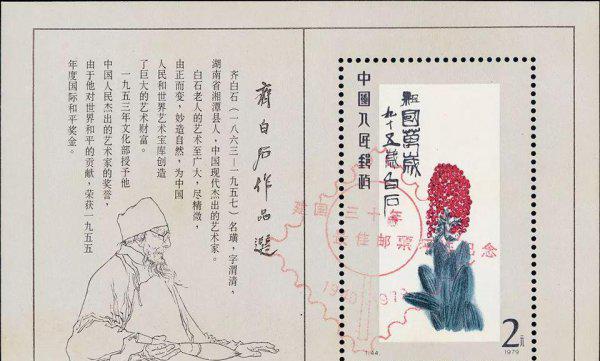 齊白石作品選
齐白石(一八六三—一九五七)名璜，字渭清，
湖南省湘潭县人，中国现代杰出的艺术家。
白石老人的艺术至广大，尽精微，
由正而变，妙造自然，为中国
人民和世界艺术宝库创造
了巨大的艺术财富。
一九五三年文化部授予他
中国人民杰出的艺术家的奖誉，
由于他对世界和平的贡献，荣获一九五五
年度国际和平奖金。
祖國萬歲
九十五歲白石
中國人民郵政
建国三十年
最佳邮票评选纪念
2元
1979